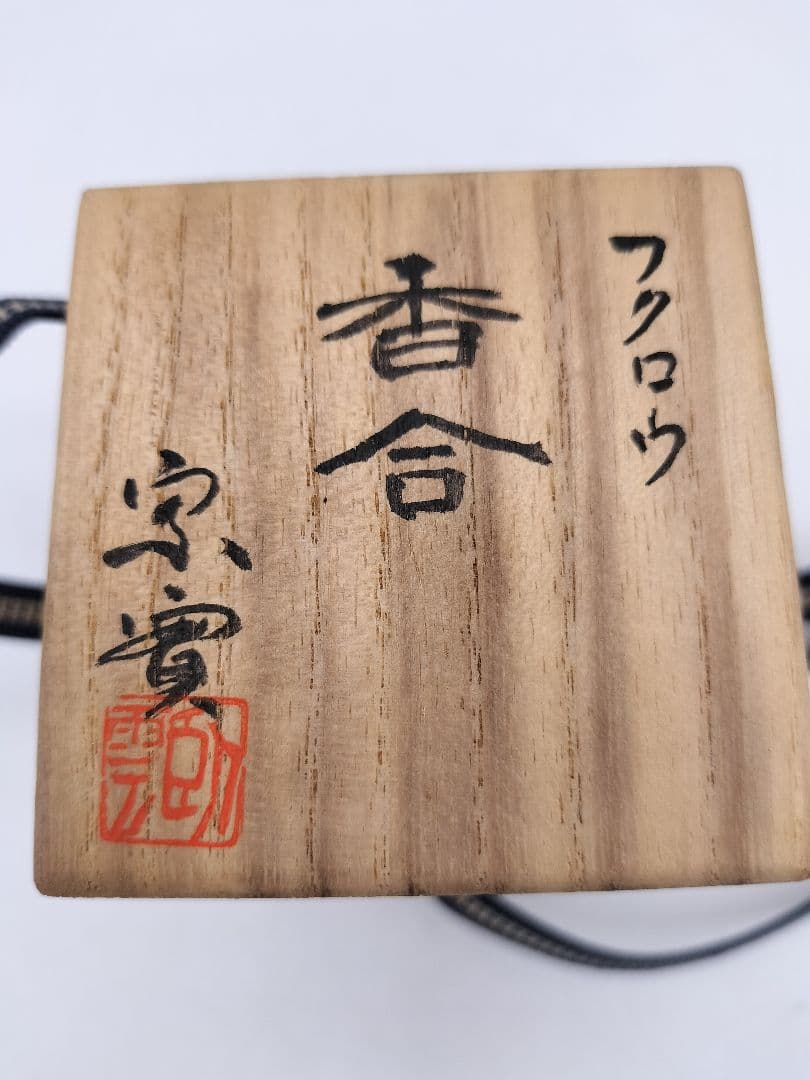 フクロウ
香合
宗實
臥雲